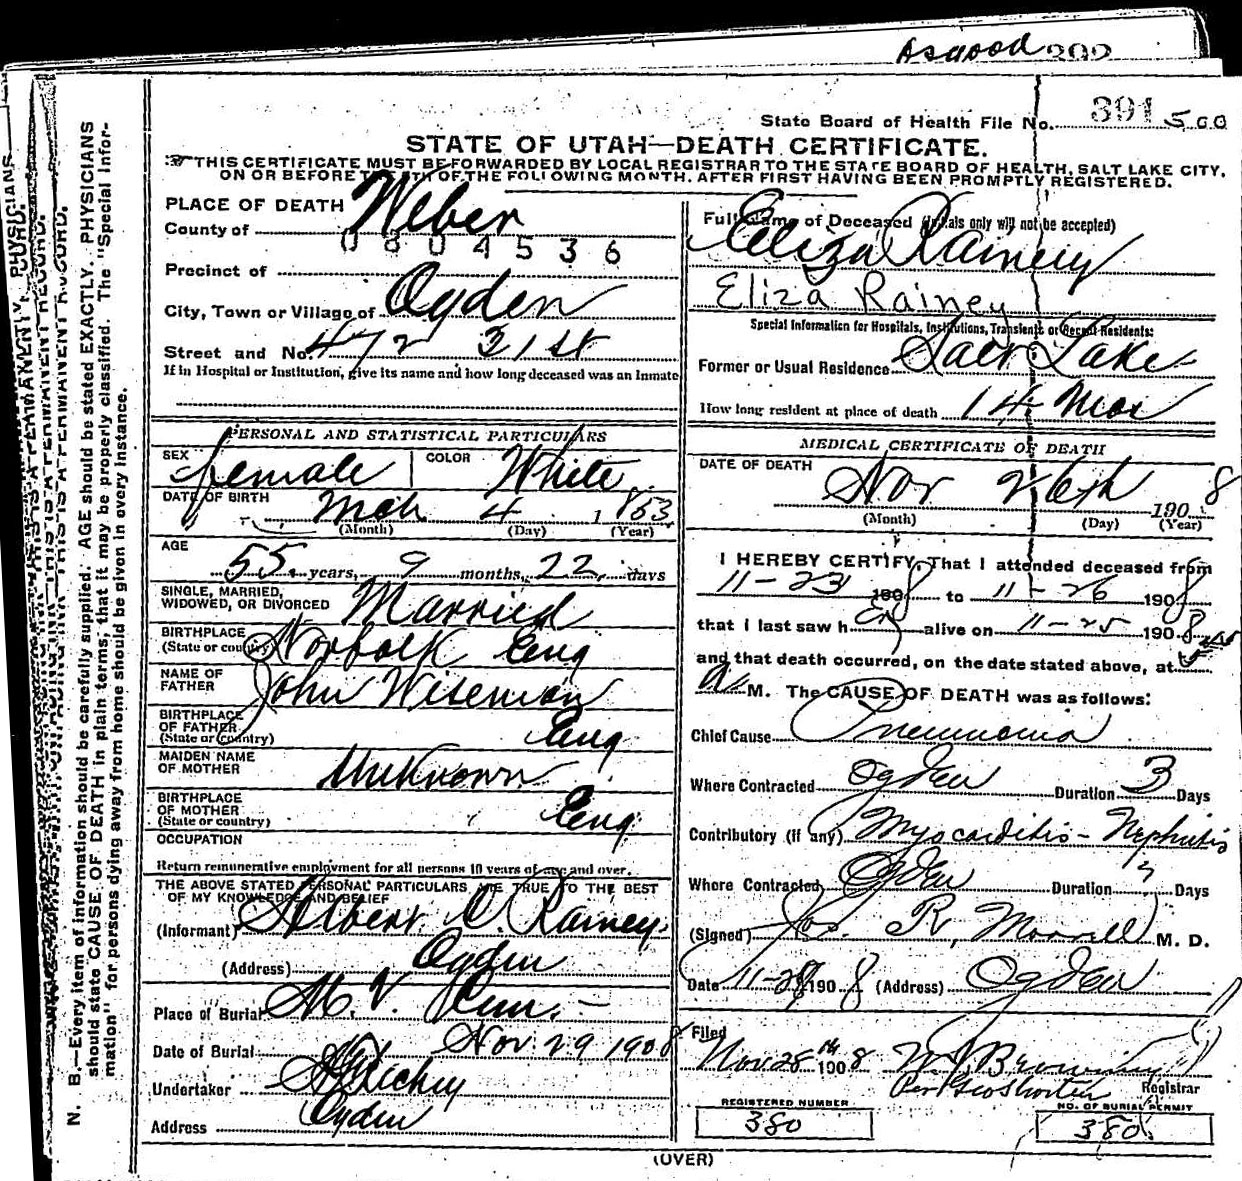 Osgood 392
State Board of Health File No. 391 500
STATE OF UTAH—DEATH CERTIFICATE.
THIS CERTIFICATE MUST BE FORWARDED BY LOCAL REGISTRAR TO THE STATE BOARD OF HEALTH, SALT LAKE CITY,
ON OR BEFORE THE 5TH OF THE FOLLOWING MONTH, AFTER FIRST HAVING BEEN PROMPTLY REGISTERED.
N. B.—Every item of information should be carefully supplied. AGE should be stated EXACTLY. PHYSICIANS
should state CAUSE OF DEATH in plain terms, that it may be properly classified. The "Special Infor-
mation" for persons dying away from home should be given in every instance.
PLACE OF DEATH
County of Weber
0804536
Precinct of
City, Town or Village of Ogden
Street and No. 472 31st
If in Hospital or Institution, give its name and how long deceased was an Inmate
PERSONAL AND STATISTICAL PARTICULARS
SEX female COLOR White
DATE OF BIRTH Mch 4 1853
(Month) (Day) (Year)
AGE
55 years, 9 months, 22 days
SINGLE, MARRIED,
WIDOWED, OR DIVORCED Married
BIRTHPLACE
(State or country) Norfolk Eng
NAME OF
FATHER John Wiseman
BIRTHPLACE
OF FATHER
(State or country) Eng
MAIDEN NAME
OF MOTHER Unknown
BIRTHPLACE
OF MOTHER
(State or country) Eng
OCCUPATION
Return remunerative employment for all persons 10 years of age and over.
THE ABOVE STATED PERSONAL PARTICULARS ARE TRUE TO THE BEST
OF MY KNOWLEDGE AND BELIEF
(Informant) Albert C. Rainey
(Address) Ogden
Place of Burial M. V. Cem.
Date of Burial Nov. 29 1908
Undertaker Richey
Address Ogden
Full Name of Deceased (Initials only will not be accepted)
Eliza Rainey
Eliza Rainey
Special Information for Hospitals, Institutions, Transients or Recent Residents:
Former or Usual Residence Salt Lake
How long resident at place of death 14 Mos
MEDICAL CERTIFICATE OF DEATH
DATE OF DEATH Nov 26th 1908
(Month) (Day) (Year)
I HEREBY CERTIFY, That I attended deceased from
11-23 1908 to 11-26 1908
that I last saw her alive on 11-25 1908
and that death occurred, on the date stated above, at 5
A M. The CAUSE OF DEATH was as follows:
Chief Cause Pneumonia
Where Contracted Ogden Duration 3 Days
Contributory (if any) Myocarditis - Nephritis
Where Contracted Ogden Duration ? Days
(Signed) Jos. R. Morrell M. D.
Date 11-28 1908 (Address) Ogden
Filed
Nov 28th 1908 W J Browning
Per Geo Shorten Registrar
REGISTERED NUMBER
380
NO. OF BURIAL PERMIT
380
(OVER)